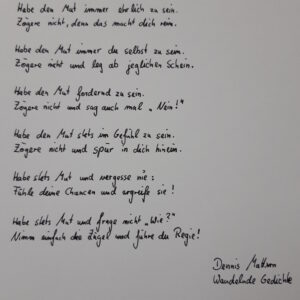 Habe den Mut immer ehrlich zu sein.
Zögere nicht, denn das macht dich rein.
Habe den Mut immer du selbst zu sein.
Zögere nicht und leg ab jeglichen Schein.
Habe den Mut fordernd zu sein.
Zögere nicht und sag auch mal „Nein!"
Habe den Mut stets im Gefühl zu sein.
Zögere nicht und spür in dich hinein.
Habe stets Mut und vergesse nie:
Fühle deine Chancen und ergreife sie!
Habe stets Mut und frage nicht „Wie?"
Nimm einfach die Zügel und führe du Regie!
Dennis
Wandelnde Gedichte